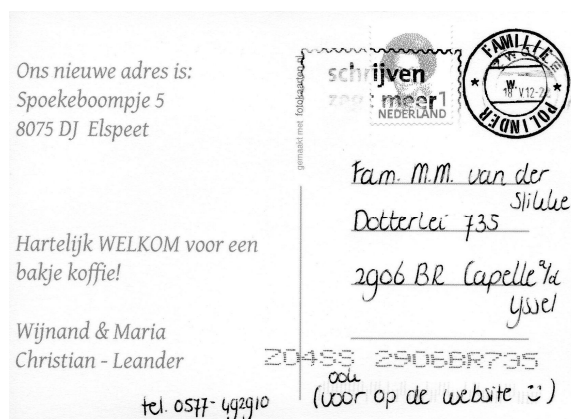 Ons nieuwe adres is:
Spoekeboompje 5
8075 DJ Elspeet
Hartelijk WELKOM voor een
bakje koffie!
Wijnand & Maria
Christian - Leander
tel. 0577-492910
gemaakt met fotokaarten.nl
schrijven
zegt meer
1
NEDERLAND
FAMILIE
POLINDER
ZWOLLE
W.
18 V12-2
Fam. M.M. van der
Slikke
Dotterlei 735
2906 BR Capelle a/d
Yssel
Z04SS 2906BR735
ook
(voor op de website :))